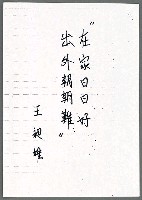 “在家日日好
出外朝朝難”
王昶雄